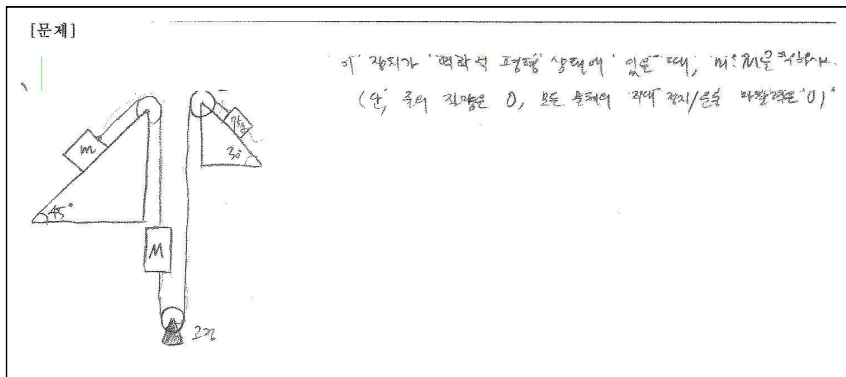 [문제]
이 장치가 '역학적 평형' 상태에 있을 때, m:M을 구하시오.
(단, 줄의 질량은 0, 모든 물체의 최대 정지/운동 마찰력은 0)
m
30°
45°
M
고정